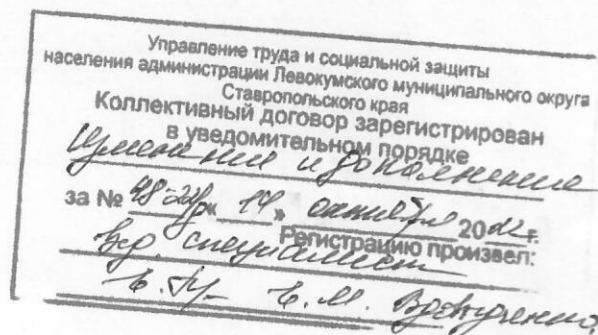 Управление труда и социальной защиты
населения администрации Левокумского муниципального округа
Ставропольского края
Коллективный договор зарегистрирован
в уведомительном порядке
Изменение и дополнение
за № 48-22 « 14 » октября 2022г.
Регистрацию произвел:
вед. специалист
Е.М.